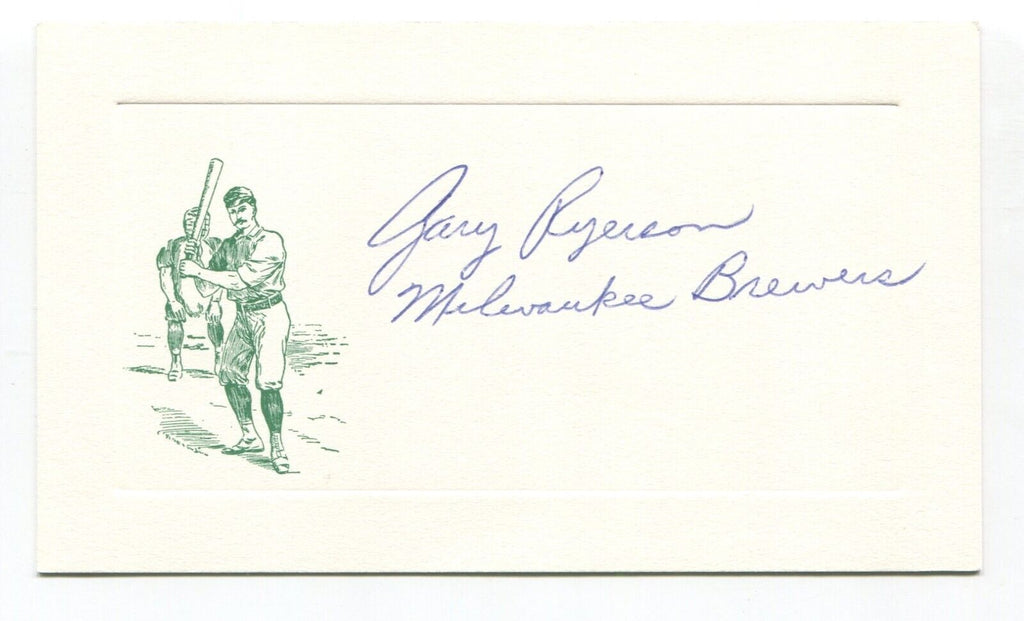 Gary Ryerson
Milwaukee Brewers